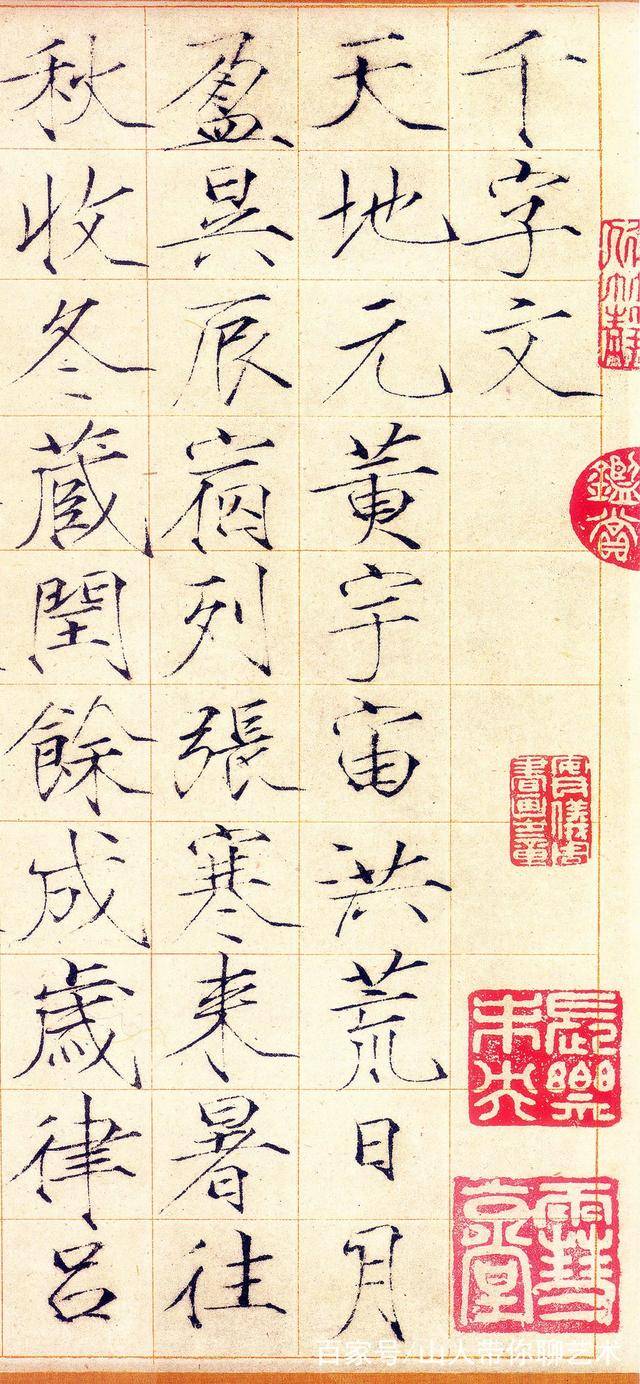 千字文
天地元黄宇宙洪荒日月
盈昃辰宿列張寒来暑往
秋收冬藏閏餘成歳律呂
鑑賞
長樂未央
百家号/山人带你聊艺术